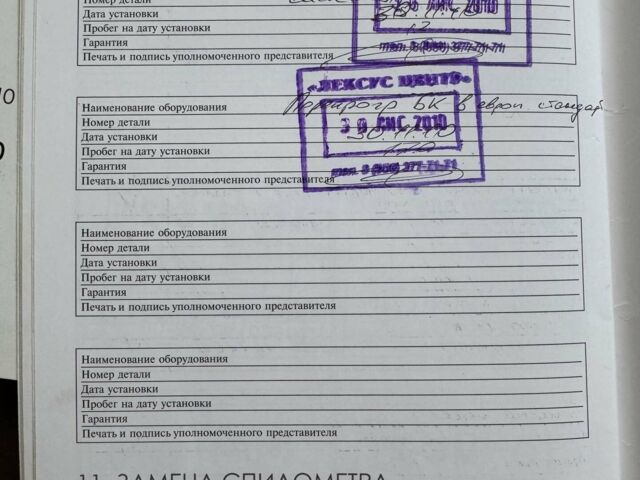 Номер детали
Дата установки
Пробег на дату установки
Гарантия
Печать и подпись уполномоченного представителя
ЛИС 2010
«ЛЕКСУС ЦЕНТР»
Наименование оборудования Перепрогр БК в европ. стандарт
Номер детали
30 ЛИС 2010
Дата установки 30.11.10
Пробег на дату установки
Гарантия
Печать и подпись уполномоченного представителя
Наименование оборудования
Номер детали
Дата установки
Пробег на дату установки
Гарантия
Печать и подпись уполномоченного представителя
Наименование оборудования
Номер детали
Дата установки
Пробег на дату установки
Гарантия
Печать и подпись уполномоченного представителя
11. ЗАМЕНА СПИДОМЕТРА